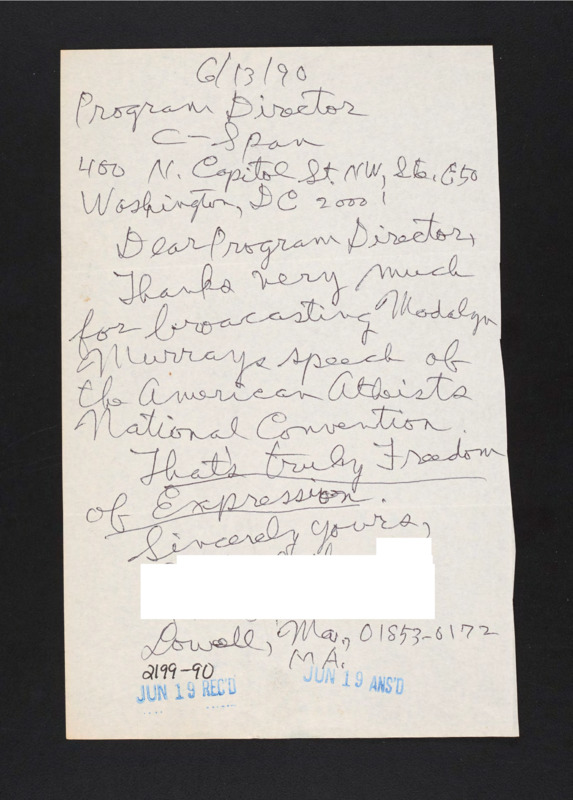 6/13/90
Program Director
C-Span
400 N. Capitol St. NW, Ste. 650
Washington, DC 20001
Dear Program Director,
Thanks very much
for broacasting Madalyn
Murrays speech of
the American Atheists
National Convention.
That's truly Freedom
of Expression.
Sincerely yours,
Lowell, Ma., 01853-0172
MA.
2199-90
JUN 19 REC'D
JUN 19 ANS'D